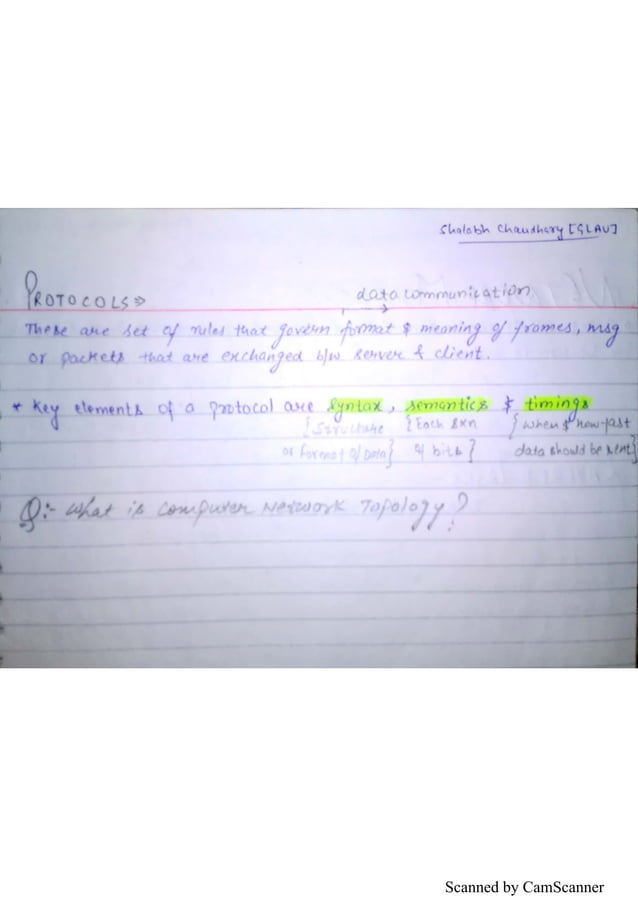 Shalabh Chaudhary [GLAU]
PROTOCOLS ⇒
data communication
These are set of rules that govern format & meaning of frames, msg
or packets that are exchanged b/w server & client.
* Key elements of a protocol are syntax, semantics & timings
{Structure or format of Data} {Each sxn of bits} {when & how fast data should be sent}
Q:- What is computer Network Topology?
Scanned by CamScanner